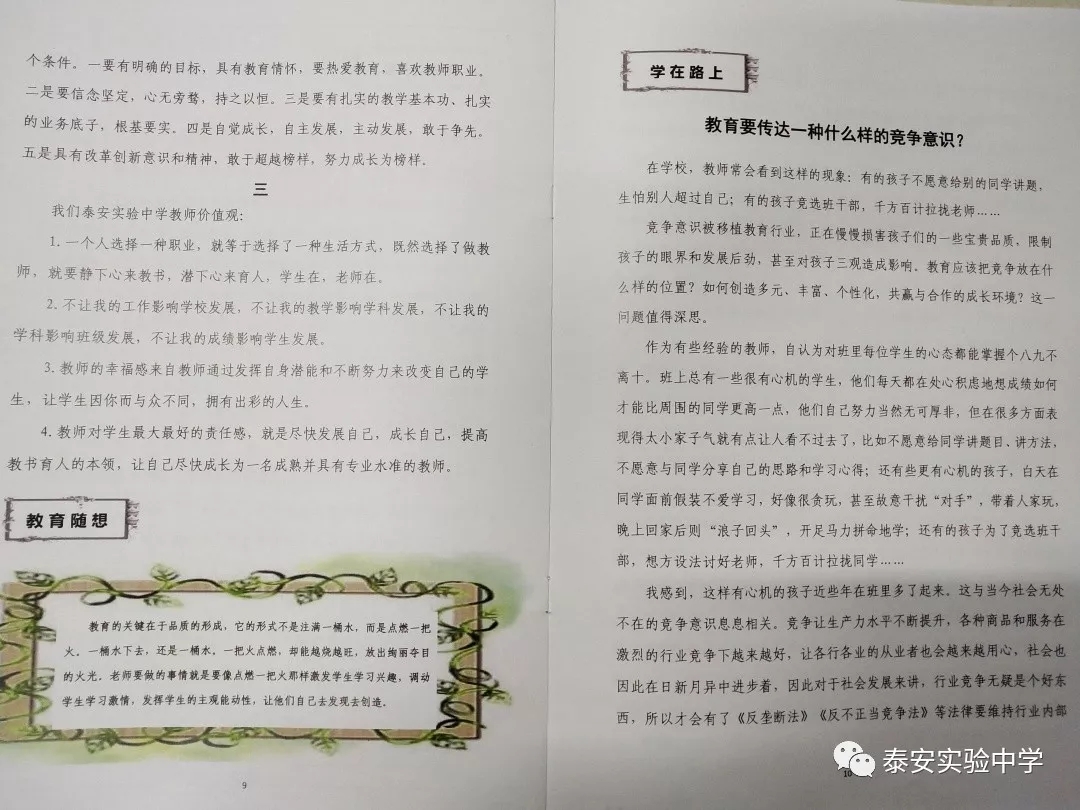 个条件。一要有明确的目标，具有教育情怀，要热爱教育，喜欢教师职业。
二是要信念坚定，心无旁骛，持之以恒。三是要有扎实的教学基本功、扎实
的业务底子，根基要实。四是自觉成长，自主发展，主动发展，敢于争先。
五是具有改革创新意识和精神，敢于超越榜样，努力成长为榜样.
三
我们泰安实验中学教师价值观：
1. 一个人选择一种职业，就等于选择了一种生活方式，既然选择了做教
师，就要静下心来教书，潜下心来育人，学生在，老师在。
2. 不让我的工作影响学校发展，不让我的教学影响学科发展，不让我的
学科影响班级发展，不让我的成绩影响学生发展。
3. 教师的幸福感来自教师通过发挥自身潜能和不断努力来改变自己的学
生，让学生因你而与众不同，拥有出彩的人生。
4. 教师对学生最大最好的责任感，就是尽快发展自己，成长自己，提高
教书育人的本领，让自己尽快成长为一名成熟并具有专业水准的教师。
教育随想
教育的关键在于品质的形成，它的形式不是注满一桶水，而是点燃一把
火。一桶水下去，还是一桶水。一把火点燃，却能越烧越旺，放出绚丽夺目
的火光。老师要做的事情就是要像点燃一把火那样激发学生学习兴趣，调动
学生学习激情，发挥学生的主观能动性，让他们自己去发现去创造.
9
学在路上
教育要传达一种什么样的竞争意识？
在学校，教师常会看到这样的现象：有的孩子不愿意给别的同学讲题，
生怕别人超过自己；有的孩子竞选班干部，千方百计拉拢老师……
竞争意识被移植教育行业，正在慢慢损害孩子们的一些宝贵品质，限制
孩子的眼界和发展后劲，甚至对孩子三观造成影响。教育应该把竞争放在什
么样的位置？如何创造多元、丰富、个性化，共赢与合作的成长环境？这一
问题值得深思。
作为有些经验的教师，自认为对班里每位学生的心态都能掌握个八九不
离十。班上总有一些很有心机的学生，他们每天都在处心积虑地想成绩如何
才能比周围的同学更高一点，他们自己努力当然无可厚非，但在很多方面表
现得太小家子气就有点让人看不过去了，比如不愿意给同学讲题目、讲方法，
不愿意与同学分享自己的思路和学习心得；还有些更有心机的孩子，白天在
同学面前假装不爱学习，好像很贪玩，甚至故意干扰“对手”，带着人家玩，
晚上回家后则“浪子回头”，开足马力拼命地学；还有的孩子为了竞选班干
部，想方设法讨好老师，千方百计拉拢同学……
我感到，这样有心机的孩子近些年在班里多了起来。这与当今社会无处
不在的竞争意识息息相关。竞争让生产力水平不断提升，各种商品和服务在
激烈的行业竞争下越来越好，让各行各业的从业者也会越来越用心，社会也
因此在日新月异中进步着，因此对于社会发展来讲，行业竞争无疑是个好东
西，所以才会有了《反垄断法》《反不正当竞争法》等法律要维持行业内部
10
泰安实验中学